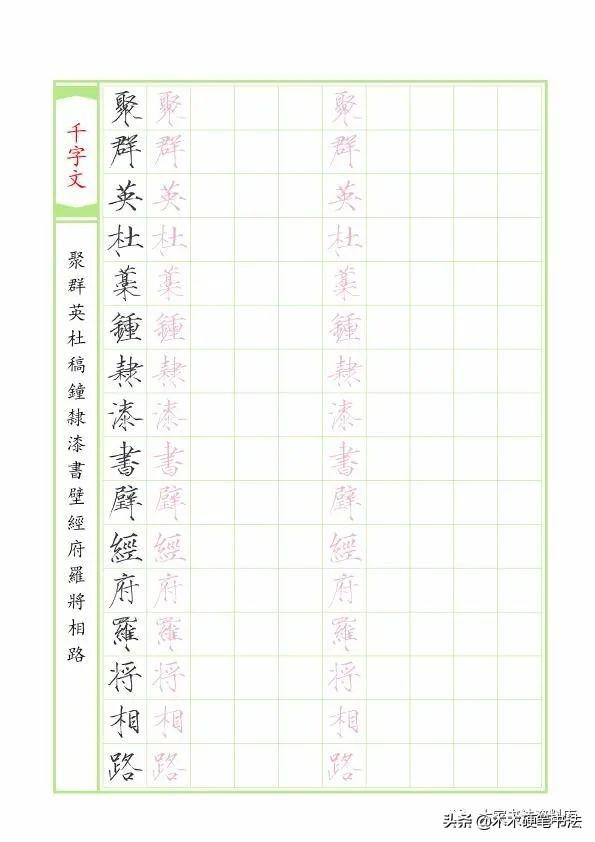 千字文
聚群英杜稿鐘隸漆書壁經府羅將相路
聚群英杜藁鍾隸漆書壁經府羅将相路
聚群英杜藁鍾隸漆書壁經府羅将相路
聚群英杜藁鍾隸漆書壁經府羅将相路
头条 @木木硬笔书法